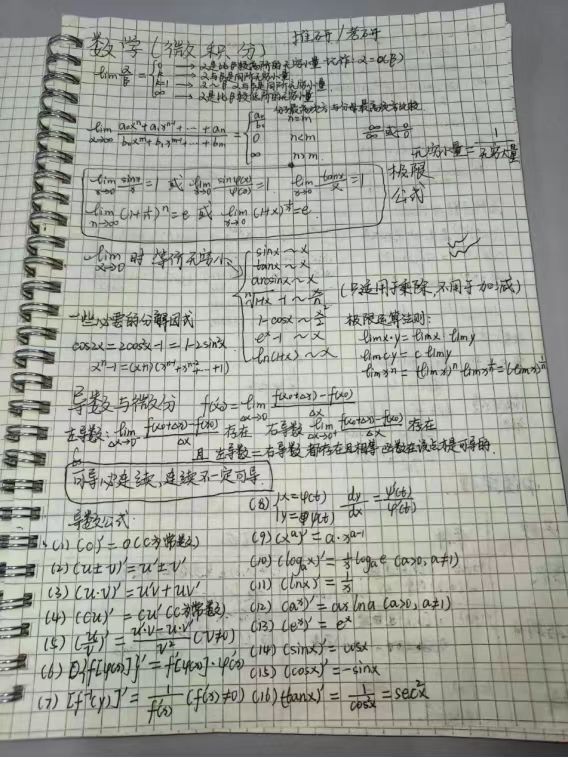 数学(微积分) 推研/考研
lim α/β = { 0 → α是比β较高阶的无穷小量 记作: α=o(β)
k → α与β是同阶无穷小量
1 → α～β α与β是同阶无穷小量
∞ → α是比β较低阶的无穷小量
分子最高次方与分母最高次方比较
lim x→∞ (a₀xⁿ+a₁xⁿ⁻¹+…+aₙ)/(b₀xᵐ+b₁xᵐ⁻¹+…+bₘ) = { a₀/b₀ n=m
0 n<m
∞ n>m
∞/∞ 或 0/0
无穷小量=1/无穷大量
lim x→0 sinx/x=1 或 lim x→0 sinφ(x)/φ(x)=1 lim x→0 tanx/x=1
lim n→∞ (1+1/n)ⁿ=e 或 lim x→0 (1+x)^(1/x)=e
极限公式
lim x→0 时 等价无穷小 { sinx～x
tanx～x
arcsinx～x
ⁿ√(1+x) -1～x/n (只适用于乘除,不用于加减)
1-cosx～x²/2
eˣ-1～x
ln(1+x)～x
一些必要的分解因式
cos2x=2cos²x-1=1-2sin²x
极限运算法则:
limx·y=limx·limy
limcy=c limy
导数与微分 f'(x₀)=lim Δx→0 (f(x₀+Δx)-f(x₀))/Δx
左导数: lim Δx→0⁻ (f(x₀+Δx)-f(x₀))/Δx 存在 右导数 lim Δx→0⁺ (f(x₀+Δx)-f(x₀))/Δx 存在
且 左导数=右导数 都存在且相等 函数在该点才是可导的.
可导必连续,连续不一定可导.
导数公式
(1) (C)'=0 (C为常数)
(2) (u±v)'=u'±v'
(3) (u·v)'=u'v+uv'
(4) (Cu)'=Cu' (C为常数)
(5) (u/v)'=(u'·v-u·v')/v² (v≠0)
(6) {f[φ(x)]}'=f'[φ(x)]·φ'(x)
(7) [f⁻¹(y)]'=1/f'(x) (f'(x)≠0)
(8) {x=φ(t) y=ψ(t) dy/dx=ψ'(t)/φ'(t)
(9) (xᵃ)'=a·xᵃ⁻¹
(10) (logₐx)'=1/x logₐe (a>0,a≠1)
(11) (lnx)'=1/x
(12) (aˣ)'=aˣlna (a>0,a≠1)
(13) (eˣ)'=eˣ
(14) (sinx)'=cosx
(15) (cosx)'=-sinx
(16) (tanx)'=1/cos²x=sec²x